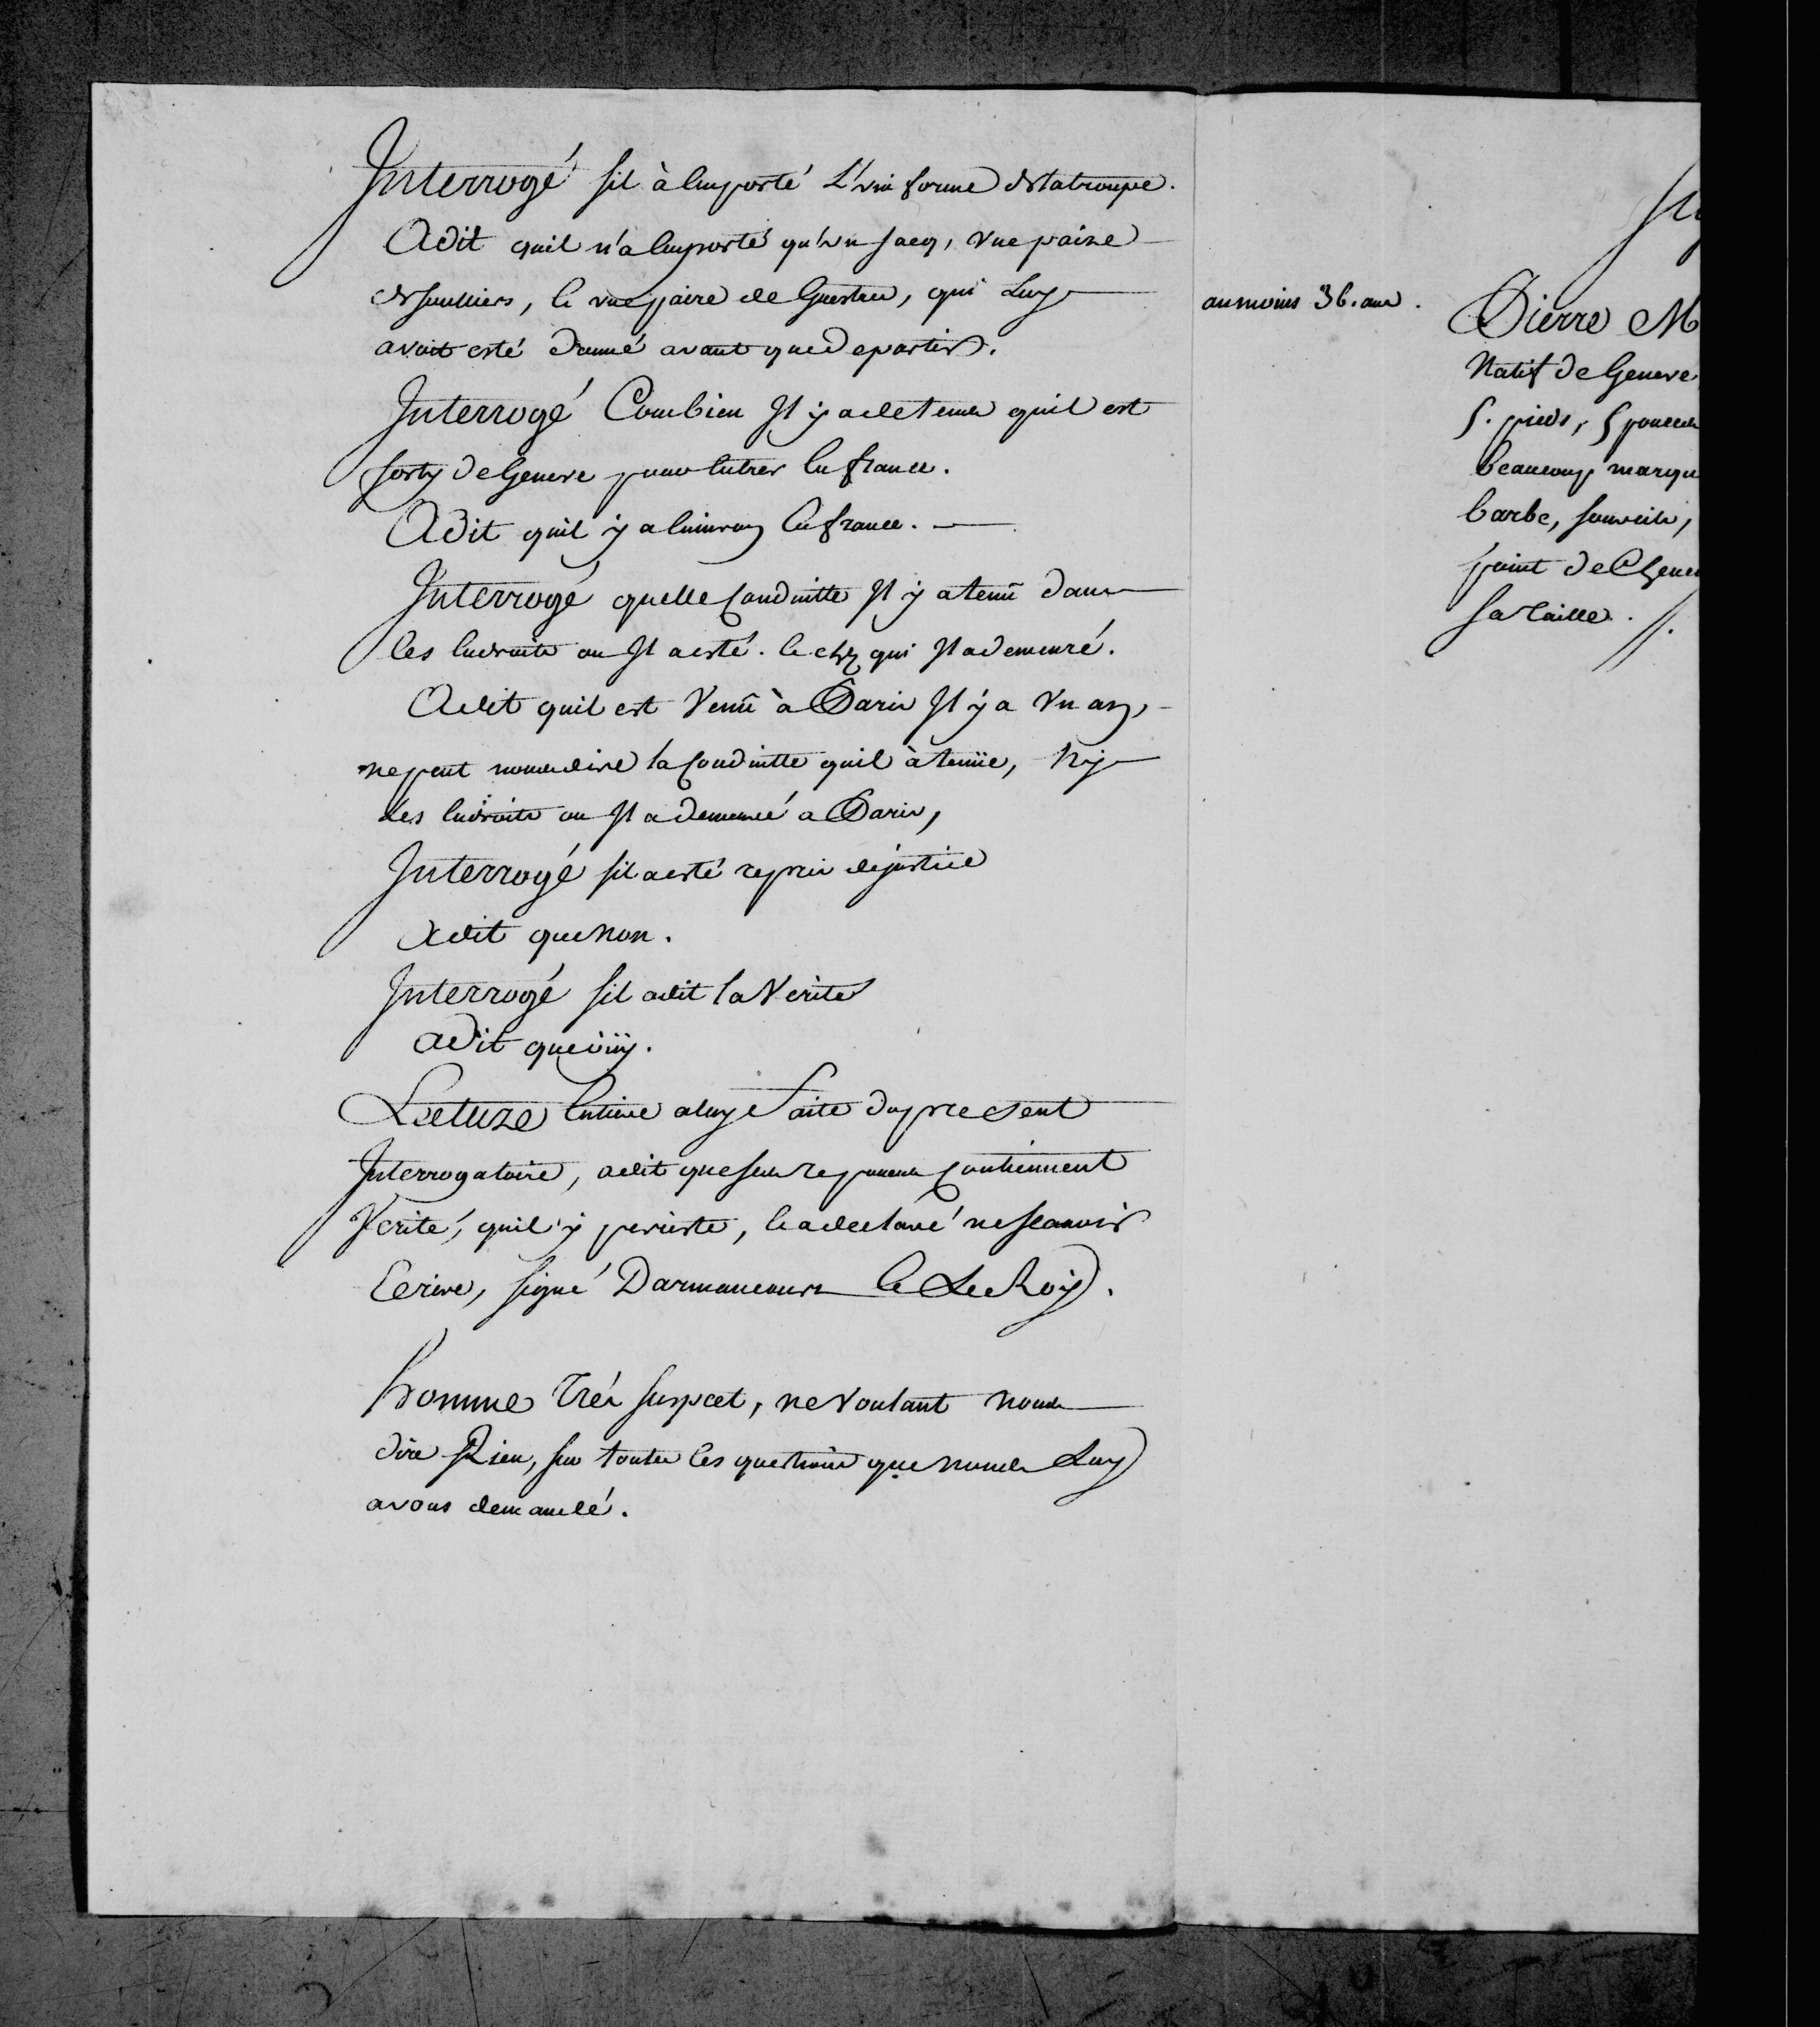 Interrogé sil à Emporté L'uniforme de la troupe.
A dit quil n'a Emporté qu'un sacq, une paire
de souliers, Et une paire de Guestres, qui Luy
avoit esté donné avant que de partir.
Interrogé Combien Il y a de tems quil est
sorty de Geneve pour Entrer En france.
A dit quil y a Environ En france.
Interrogé quelle Conduitte Il y a tenü dans
les Endroits ou Il a esté. Et chez qui Il a demeuré.
A dit quil est Venü à Paris Il y a Un an,
ne peut nous dire la Conduitte quil à tenüe, Ny
Les Endroits ou Il a demeuré a Paris,
Interrogé sil a esté repris de justice
A dit que non.
Interrogé sil a dit la Verité
A dit que oüy.
Lecture Entiere a luy faite du present
Interrogatoire, a dit que ses reponses Contiennent
Verité, quil y persiste, Et a declaré ne sçavoir
Ecrire, signé Darmancourt Et Le Roy.
homme trés suspect, ne Voulant nous
dire Rien, sur toutes les questions que nous Luy
avons demandé.
au moins 36. ans.
Pierre M
Natif de Geneve
5. pieds, 5 pouces
beaucoup marqu
barbe, sourcils,
point de Cheve
sa taille.